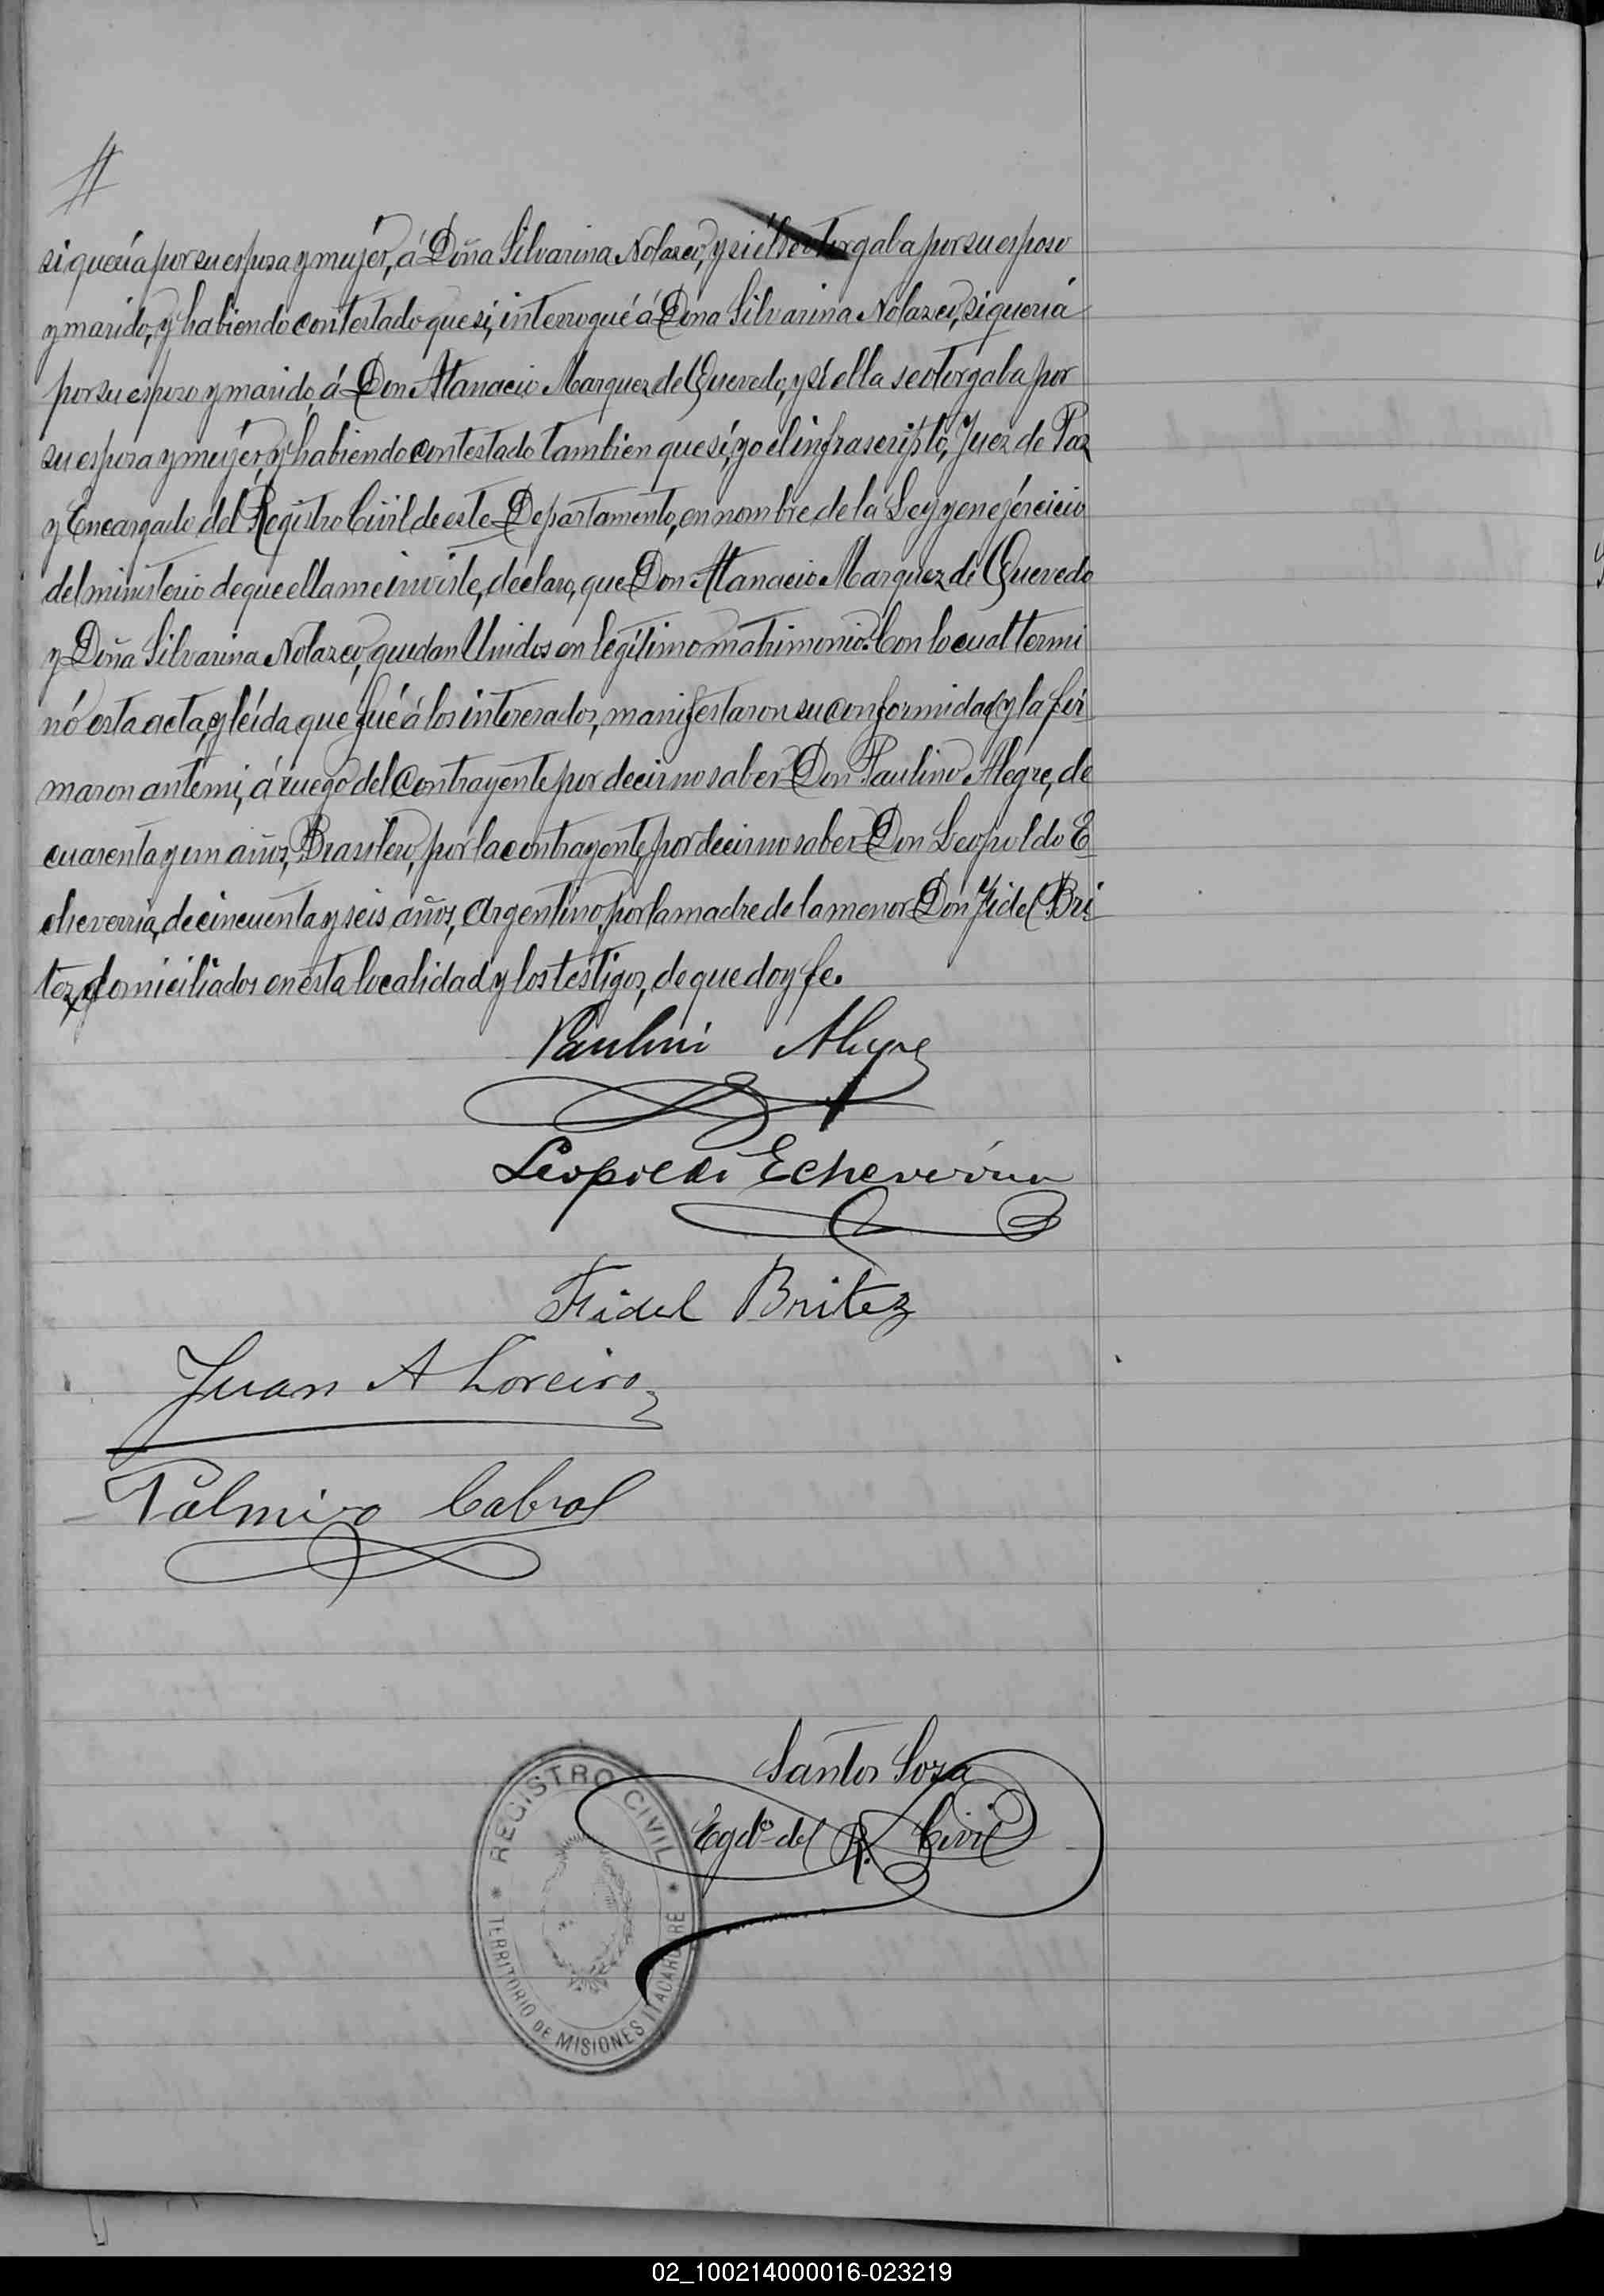 //
si quería por su esposa y mujér, á Doña Silvarina Nolazco, y si él se otorgaba por su esposo
y marido, y habiendo contestado que sí, interrogué á Doña Silvarina Nolazco, si quería
por su esposo y marido, á Don Atanacio Marquez de Quevedo, y sí ella se otorgaba por
su esposa y mujér, y habiendo contestado tambien que sí, yo el infrascripto, Juez de Paz
y Encargado del Registro Civil de este Departamento, en nombre de la Ley y en ejércicio
del ministerio de que ella me inviste, declaro, que Don Atanacio Marquez de Quevedo
y Doña Silvarina Nolazco, quedan Unidos en legítimo matrimonio. Con lo cual termi
nó esta acta, y leída que fué á los interesados, manifestaron su conformidad y la fir
maron ante mi, á ruego del Contrayente por decir no saber Don Paulino Alegre, de
cuarenta y un años, Brasilero, por la contrayente, por decir no saber Don Leopoldo E
cheverria, de cincuenta y seis años, Argentino, por la madre de la menor Don Fidel Bri
tez, domiciliados en esta localidad y los testigos, de que doy fe.
Paulini Alegre
Leopoldo Echeverria
Fidel Britez
Juan A Loreiro
Palmiro Cabral
Santos Soza
Egdº del R. Civil
REGISTRO CIVIL
TERRITORIO DE MISIONES ITACARUARE
02_100214000016-023219